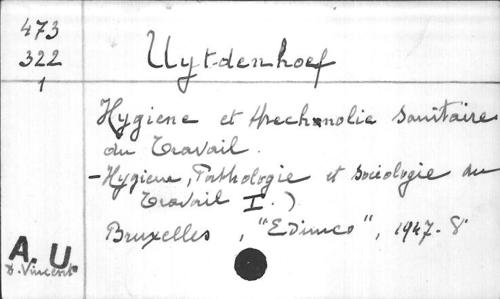 473
322
1
Uyt-denhoef
Hygiene et sanitaire
du Travail.
- Hygiene, Pathologie et Sociologie du
Travail I.)
Bruxelles, "EDimco", 1947-8°
A. U
D. Vincent